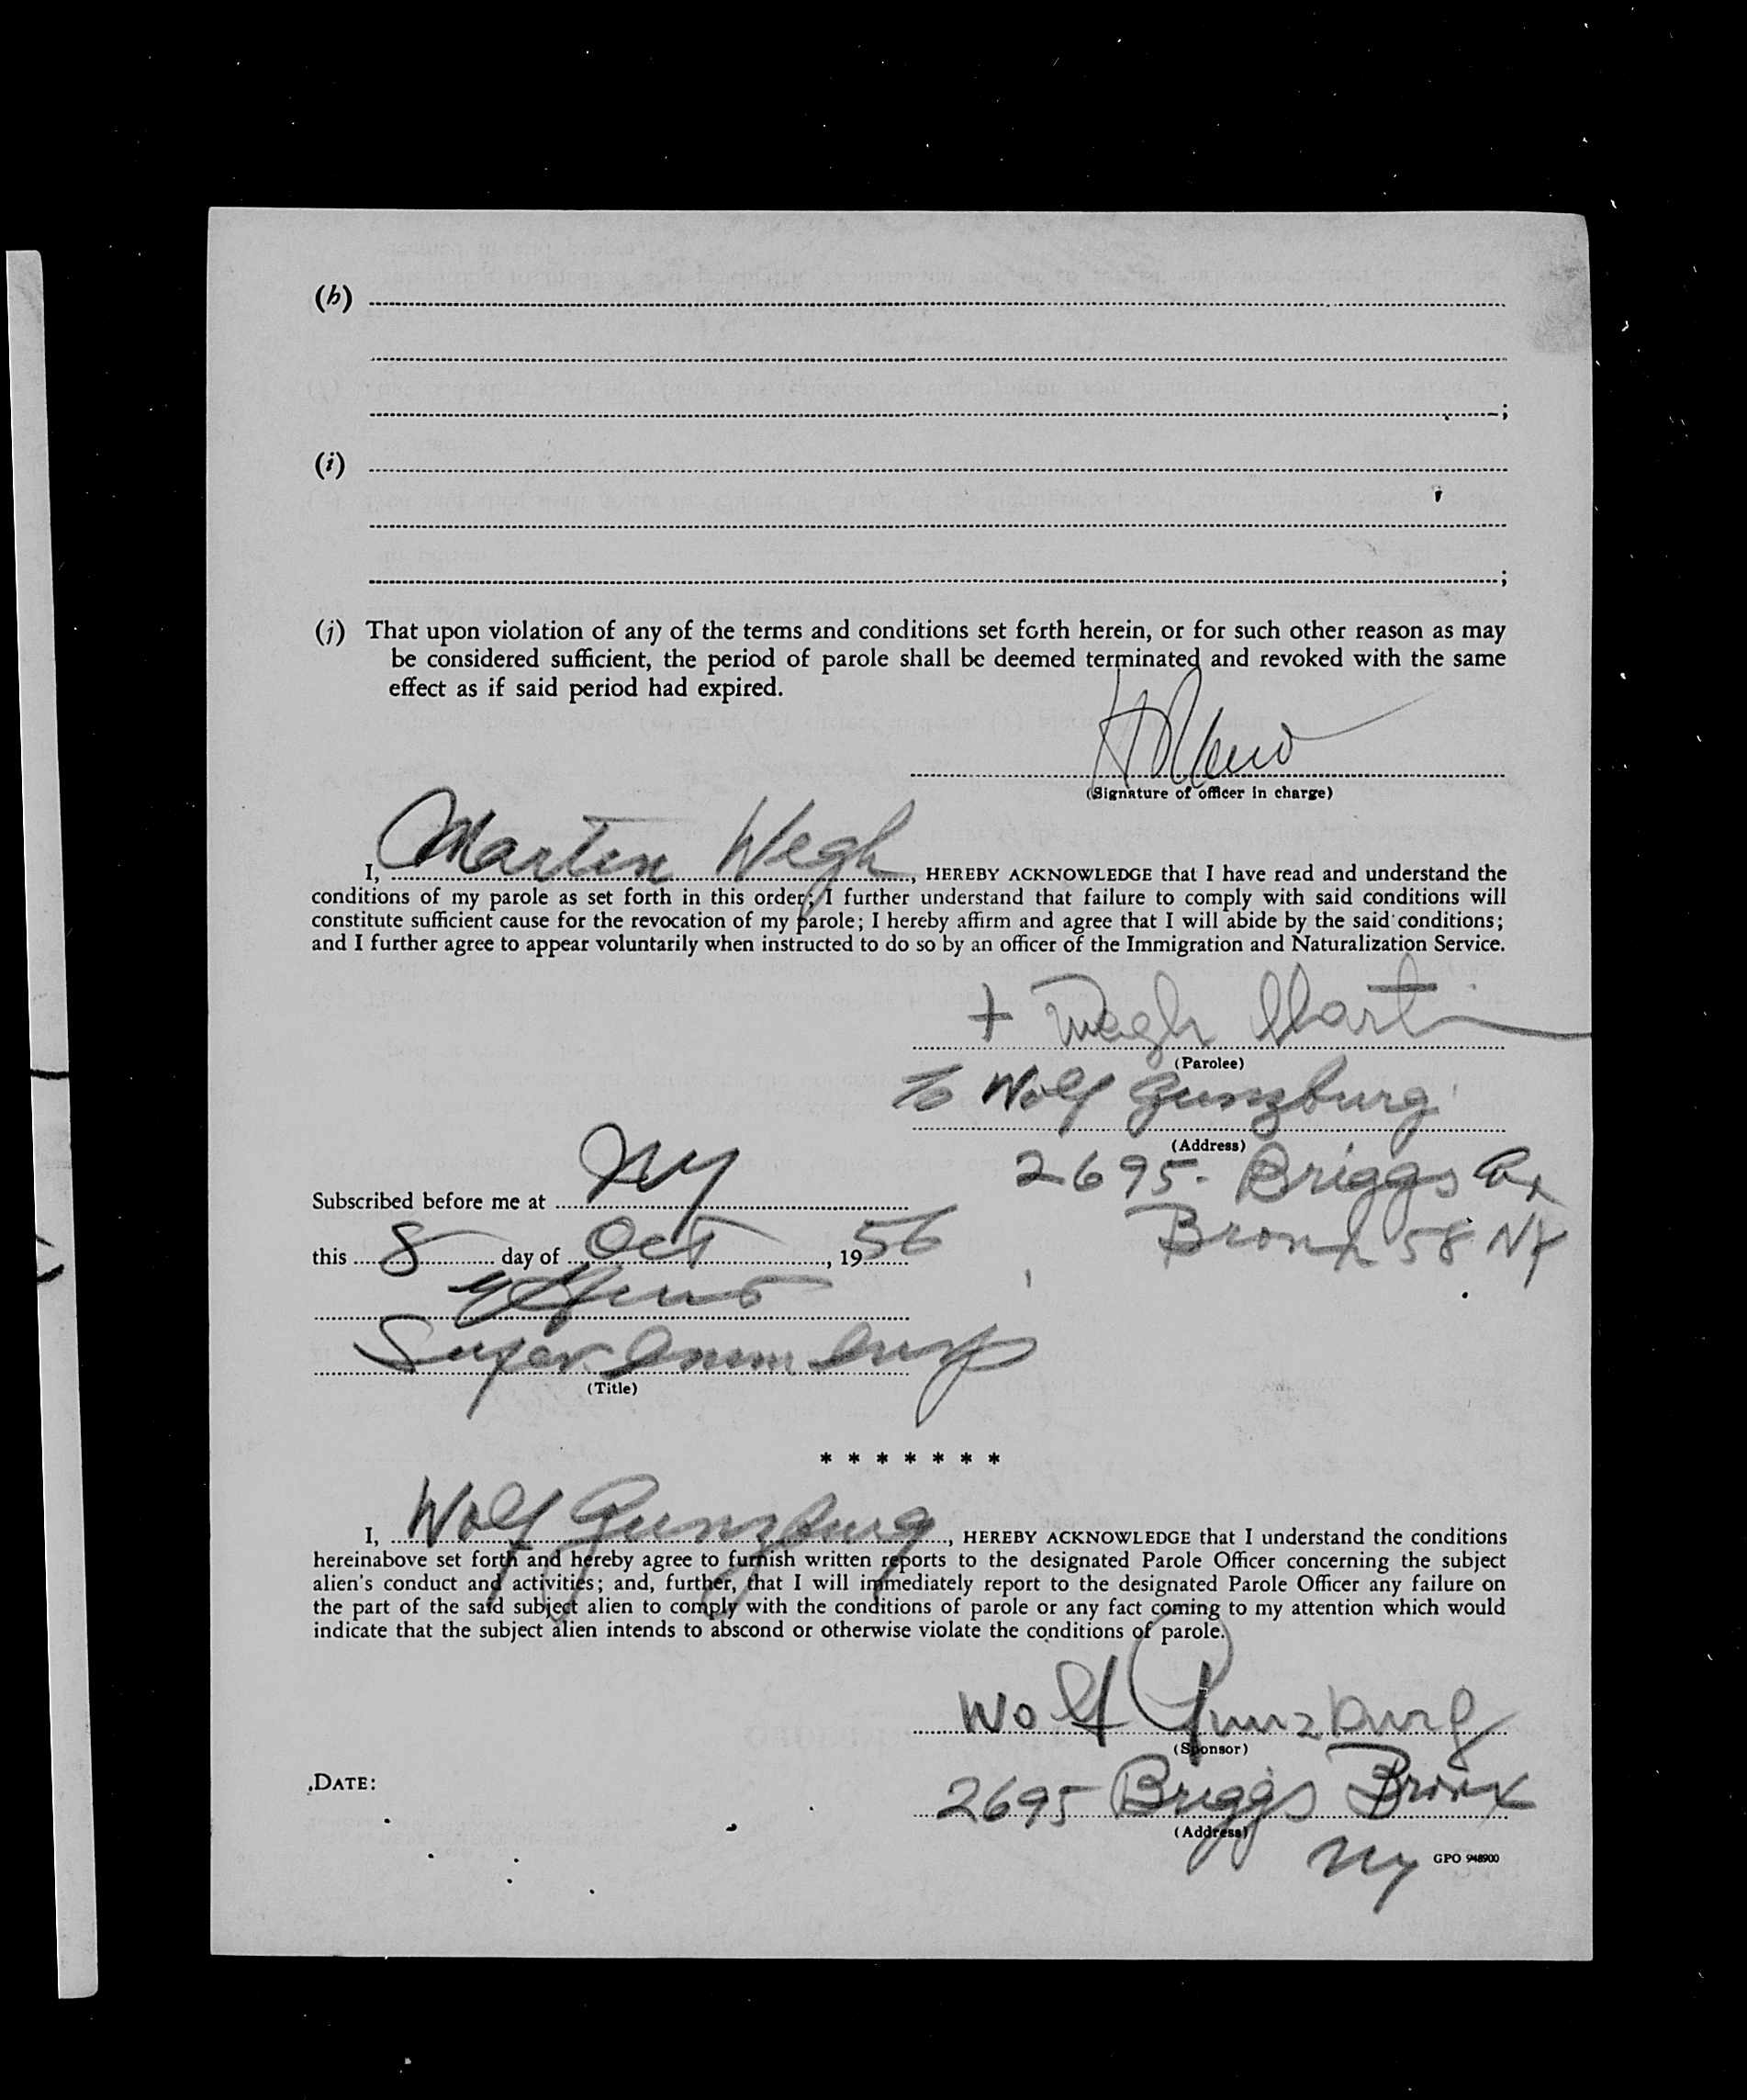 (h)
;
(i)
;
(j) That upon violation of any of the terms and conditions set forth herein, or for such other reason as may
be considered sufficient, the period of parole shall be deemed terminated and revoked with the same
effect as if said period had expired.
(Signature of officer in charge)
I, Martin Wegh, HEREBY ACKNOWLEDGE that I have read and understand the
conditions of my parole as set forth in this order; I further understand that failure to comply with said conditions will
constitute sufficient cause for the revocation of my parole; I hereby affirm and agree that I will abide by the said conditions;
and I further agree to appear voluntarily when instructed to do so by an officer of the Immigration and Naturalization Service.
+ Wegh Martin
(Parolee)
Wolf Gunzburg
(Address)
2695 - Briggs Av
Bronx 58 NY
Subscribed before me at NY
this 8 day of Oct, 1956
Super Imm Insp
(Title)
* * * * * * *
I, Wolf Gunzburg, HEREBY ACKNOWLEDGE that I understand the conditions
hereinabove set forth and hereby agree to furnish written reports to the designated Parole Officer concerning the subject
alien's conduct and activities; and, further, that I will immediately report to the designated Parole Officer any failure on
the part of the said subject alien to comply with the conditions of parole or any fact coming to my attention which would
indicate that the subject alien intends to abscond or otherwise violate the conditions of parole.
Wolf Gunzburg
(Sponsor)
DATE:
2695 Briggs Bronx
(Address)
NY
GPO 948900